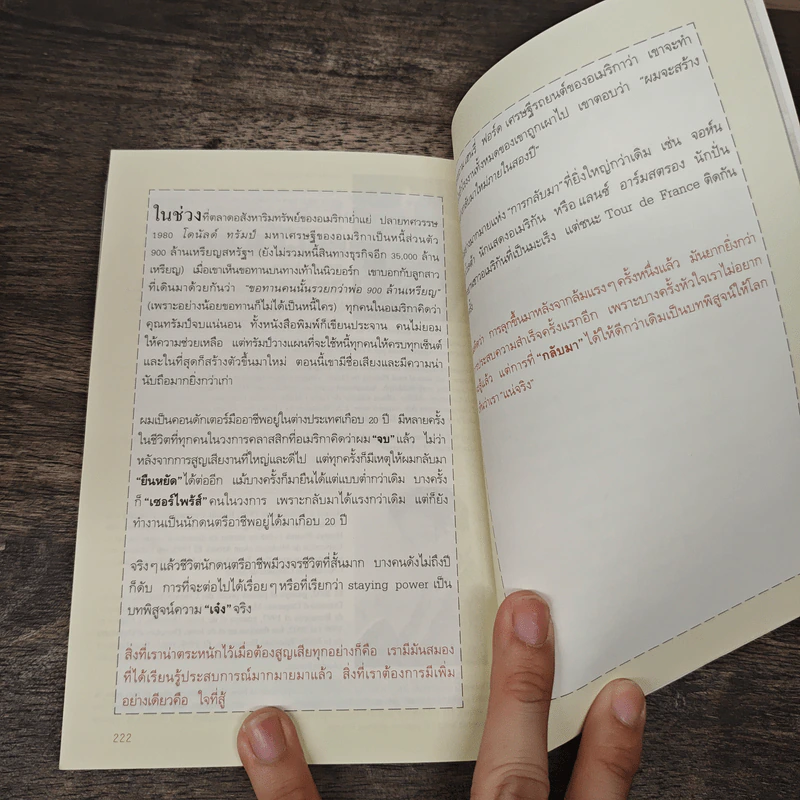 ในช่วงที่ตลาดอสังหาริมทรัพย์ของอเมริกาย่ำแย่ ปลายทศวรรษ
1980 โดนัลด์ ทรัมป์ มหาเศรษฐีของอเมริกาเป็นหนี้ส่วนตัว
900 ล้านเหรียญสหรัฐฯ (ยังไม่รวมหนี้สินทางธุรกิจอีก 35,000 ล้าน
เหรียญ) เมื่อเขาเห็นขอทานบนทางเท้าในนิวยอร์ก เขาบอกกับลูกสาว
ที่เดินมาด้วยกันว่า "ขอทานคนนั้นรวยกว่าพ่อ 900 ล้านเหรียญ"
(เพราะอย่างน้อยขอทานก็ไม่ได้เป็นหนี้ใคร) ทุกคนในอเมริกาคิดว่า
คุณทรัมป์จบแน่นอน ทั้งหนังสือพิมพ์ก็เขียนประจาน คนไม่ยอม
ให้ความช่วยเหลือ แต่ทรัมป์วางแผนที่จะใช้หนี้ทุกคนให้ครบทุกเซ็นต์
และในที่สุดก็สร้างตัวขึ้นมาใหม่ ตอนนี้เขามีชื่อเสียงและมีความน่า
นับถือมากยิ่งกว่าเก่า
ผมเป็นคอนดักเตอร์มืออาชีพอยู่ในต่างประเทศเกือบ 20 ปี มีหลายครั้ง
ในชีวิตที่ทุกคนในวงการคลาสสิกที่อเมริกาคิดว่าผม "จบ" แล้ว ไม่ว่า
หลังจากการสูญเสียงานที่ใหญ่และดีไป แต่ทุกครั้งก็มีเหตุให้ผมกลับมา
"ยืนหยัด" ได้ต่ออีก แม้บางครั้งก็มายืนได้แต่แบบต่ำกว่าเดิม บางครั้ง
ก็ "เซอร์ไพร้ส์" คนในวงการ เพราะกลับมาได้แรงกว่าเดิม แต่ก็ยัง
ทำงานเป็นนักดนตรีอาชีพอยู่ได้มาเกือบ 20 ปี
จริงๆ แล้วชีวิตนักดนตรีอาชีพมีวงจรชีวิตที่สั้นมาก บางคนดังไม่ถึงปี
ก็ดับ การที่จะต่อไปได้เรื่อยๆ หรือที่เรียกว่า staying power เป็น
บทพิสูจน์ความ "เจ๋ง" จริง
สิ่งที่เราน่าตระหนักไว้เมื่อต้องสูญเสียทุกอย่างก็คือ เรามีมันสมอง
ที่ได้เรียนรู้ประสบการณ์มากมายมาแล้ว สิ่งที่เราต้องการมีเพิ่ม
อย่างเดียวคือ ใจที่สู้
222
ฟอร์ด เศรษฐีรถยนต์ของอเมริกาว่า เขาจะทำ
โรงงานทั้งหมดของเขาถูกเผาไป เขาตอบว่า "ผมจะสร้าง
กลับมาใหม่ภายในสองปี"
มากมายแห่ง "การกลับมา" ที่ยิ่งใหญ่กว่าเดิม เช่น จอห์น
นักแสดงอเมริกัน หรือ แลนซ์ อาร์มสตรอง นักปั่น
ชาวอเมริกันที่เป็นมะเร็ง แต่ชนะ Tour de France ติดกัน
การลุกขึ้นมาหลังจากล้มแรงๆ ครั้งหนึ่งแล้ว มันยากยิ่งกว่า
ประสบความสำเร็จครั้งแรกอีก เพราะบางครั้งหัวใจเราไม่อยาก
สู้แล้ว แต่การที่ "กลับมา" ได้ให้ดีกว่าเดิมเป็นบทพิสูจน์ให้โลก
ว่าเรา "แน่จริง"